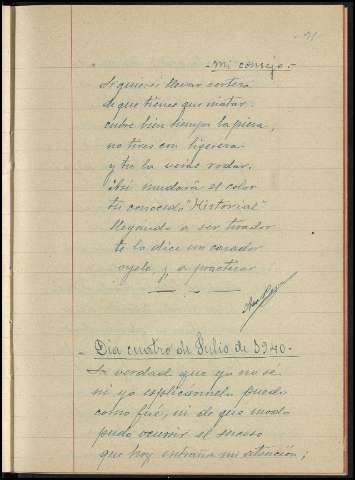 91
-Mi consejo.-
Si quieres llevar certera
de que tienes que matar
cubre bien tiempo la pieza,
no tires con ligereza
y tu la veras rodar.
Asi mudará el color
tu conocido "Historial"
llegando a ser tirador
te lo dice un cazador
oyelo, y a practicar
- Dia cuatro de Julio de 1940.-
La verdad que yo no sé
ni yo esplicármelo puedo
como fué, ni de que modo
pudo ocurrir el suceso
que hoy entraña mi atención;